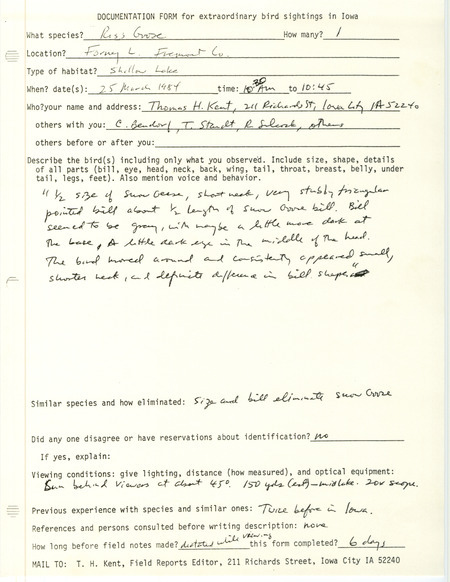 DOCUMENTATION FORM for extraordinary bird sightings in Iowa
What species? Ross Goose How many? 1
Location? Forney L. Fremont Co.
Type of habitat? Shallow Lake
When? date(s): 25 March 1984 time: 10 30 Am to 10:45
Who? your name and address: Thomas H. Kent, 211 Richards St, Iowa City IA 52240
others with you: C. Bendorf, T. Staudt, R. others
others before or after you:
Describe the bird(s) including only what you observed. Include size, shape, details
of all parts (bill, eye, head, neck, back, wing, tail, throat, breast, belly, under
tail, legs, feet). Also mention voice and behavior.
" 1/2 size of Snow Goose, short neck, very stubby triangular
pointed bill about 1/2 length of Snow Goose bill. Bill
seemed to be gray, with maybe a little more dark at
the base. A little dark eye in the middle of the head.
The bird moved around and consistently appeared small,
shorter neck, and definite difference in bill shape."
Similar species and how eliminated: Size and bill eliminate Snow Goose
Did any one disagree or have reservations about identification? no
If yes, explain:
Viewing conditions: give lighting, distance (how measured), and optical equipment:
Sun behind viewers at about 45°. 150 yds (est)-midlake. 20x scope.
Previous experience with species and similar ones: Twice before in Iowa.
References and persons consulted before writing description: none
How long before field notes made? dictated while viewing this form completed? 6 days
MAIL TO: T. H. Kent, Field Reports Editor, 211 Richards Street, Iowa City IA 52240